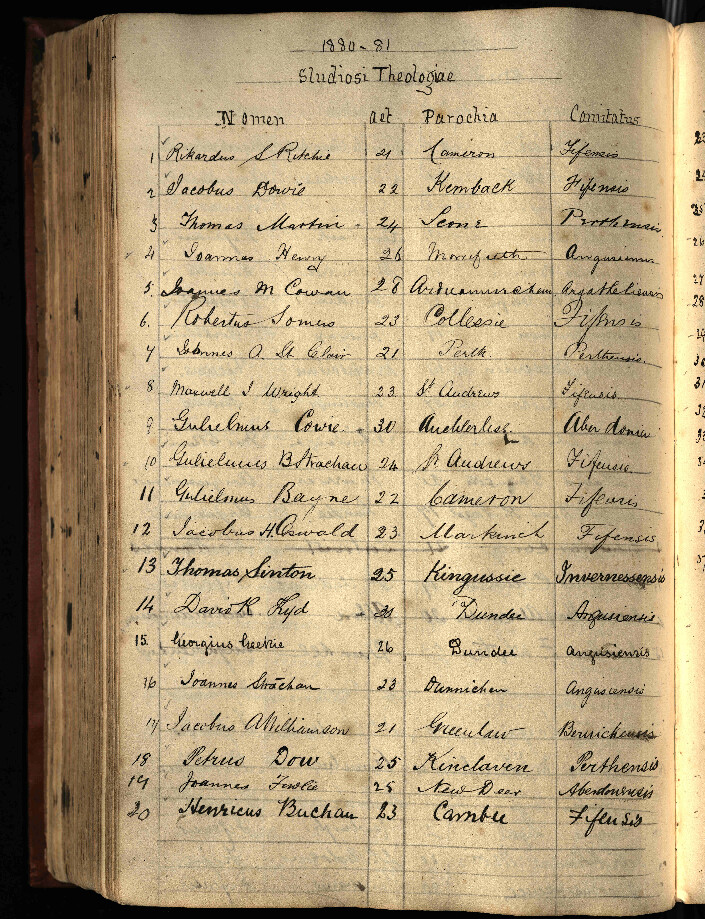 1880-81
Studiosi Theologiae
Nomen aet Parochia Comitatus
1 Rikardus S Ritchie 21 Cameron Fifensis
2 Jacobus Dowie 22 Kemback Fifensis
3 Thomas Martin 24 Scone Perthensis
4 Joannes Henry 26 Monifieth
5. Joannes M Cowan 28
6. Robertus Somers 23 Collessie Fifensis
7 Johannes A. St Clair 21 Perth Perthensis
8 Maxwell J Wright 23 St Andrews Fifensis
9 Gulielmus Cowie 30
10 Gulielmus B Strachan 24 St Andrews Fifensis
11 Gulielmus Bayne 22 Cameron Fifensis
12 Jacobus H. Oswald 23 Markinch Fifensis
13 Thomas Sinton 25 Kingussie
14 David K Kyd Dundee Angusensis
15. Georgius Geekie 26 Dundee Angusiensis
16 Joannes Strachan 23 Dunnichen Angusiensis
17 Jacobus A Williamson 21 Greenlaw
18 Petrus Dow 25 Kinclaven Perthensis
19 Joannes 25 New Deer Aberdonensis
20 Henricus Buchan 23 Fifensis
23